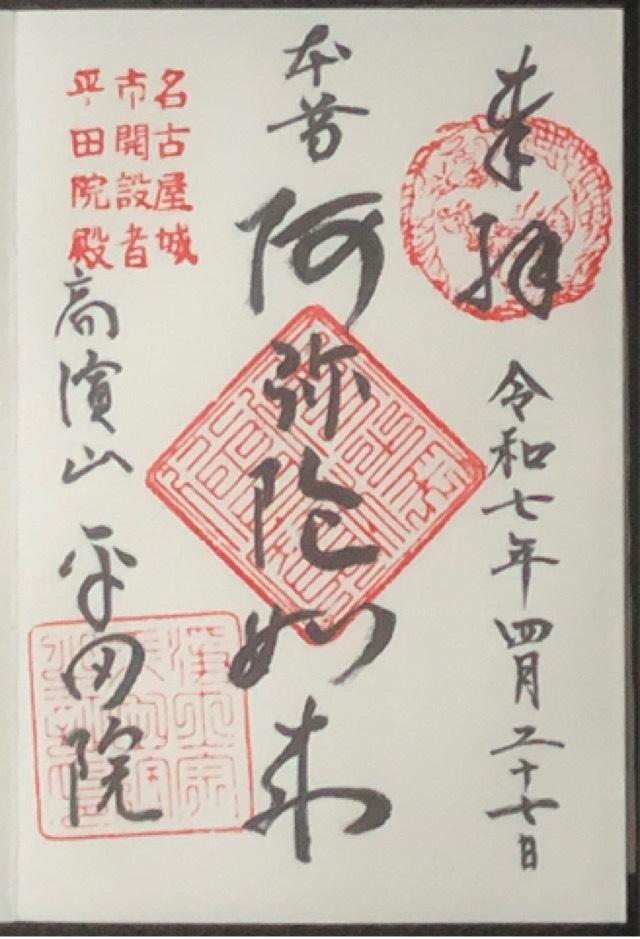 奉拝
令和七年四月二十七日
本尊
阿弥陀如来
名古屋城
市開設者
平田院殿
高濱山
平田院